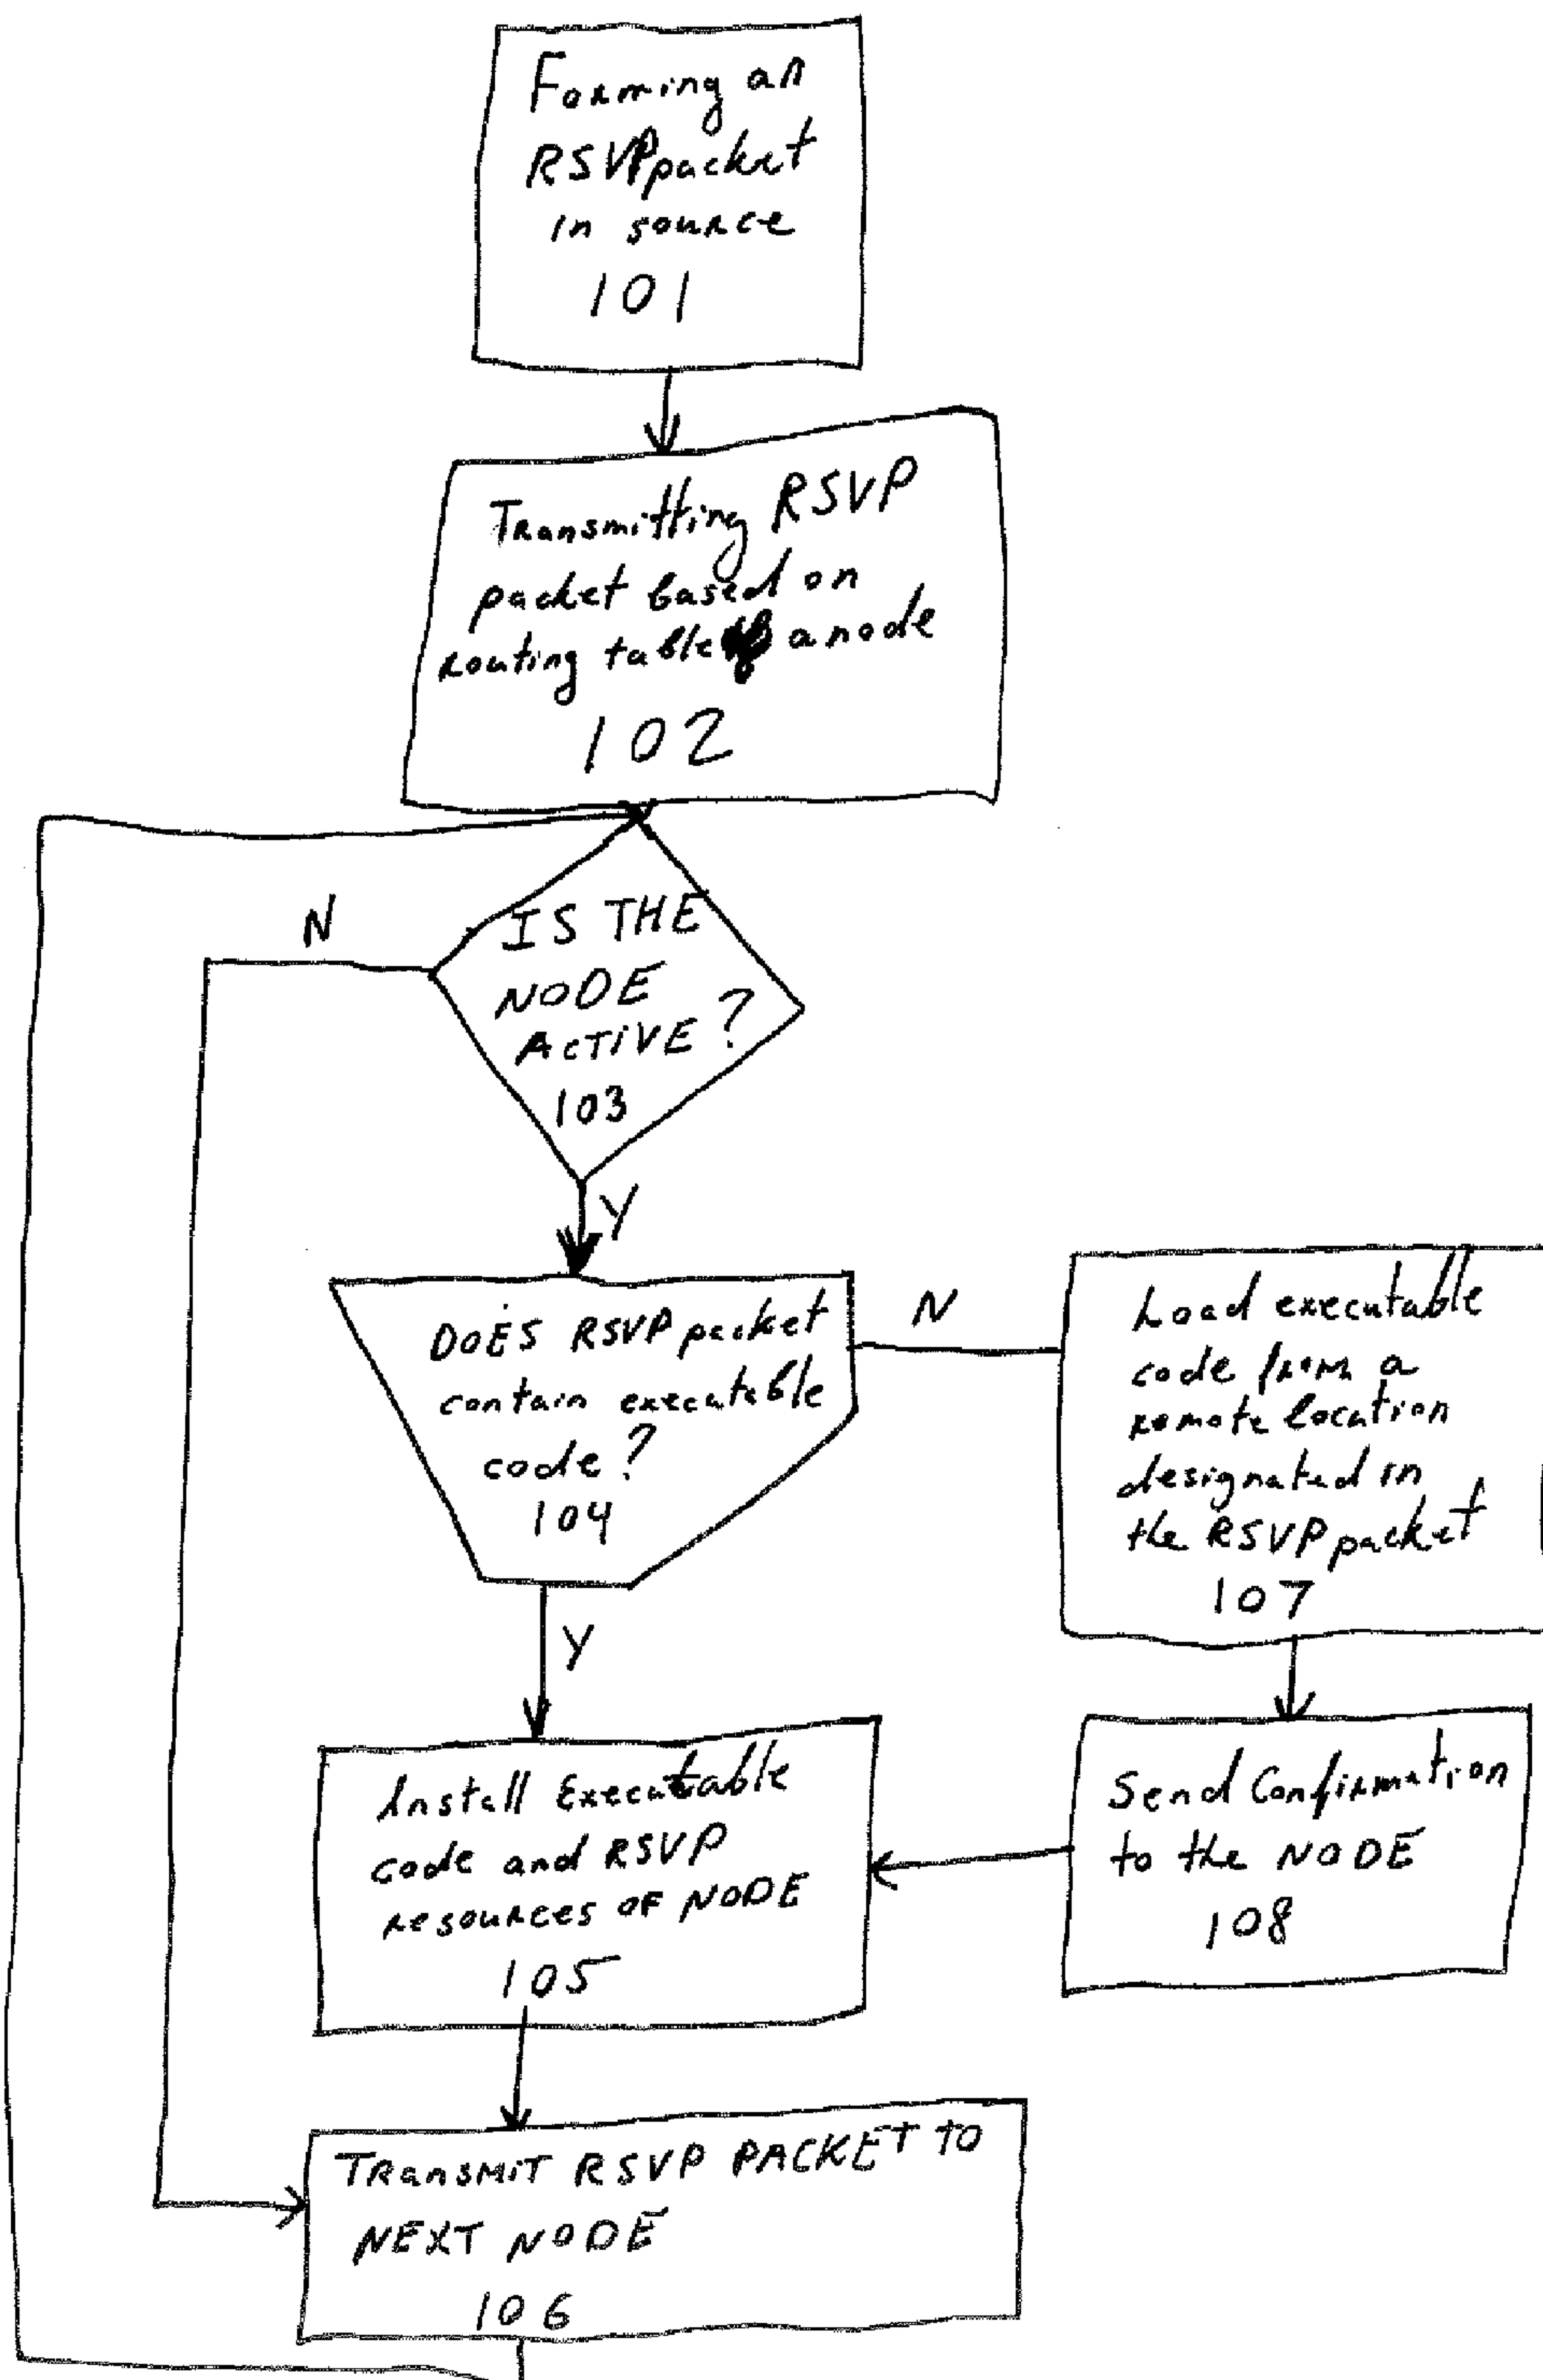 Forming an
RSVP packet
in source
101
Transmitting RSVP
packet based on
routing table of a node
102
N
IS THE
NODE
ACTIVE?
103
Y
DOES RSVP packet
contain executable
code?
104
N
Load executable
code from a
remote location
designated in
the RSVP packet
107
Y
Install Executable
code and RSVP
resources OF NODE
105
Send Confirmation
to the NODE
108
TRansMiT RSVP PACKET TO
NEXT NODE
106